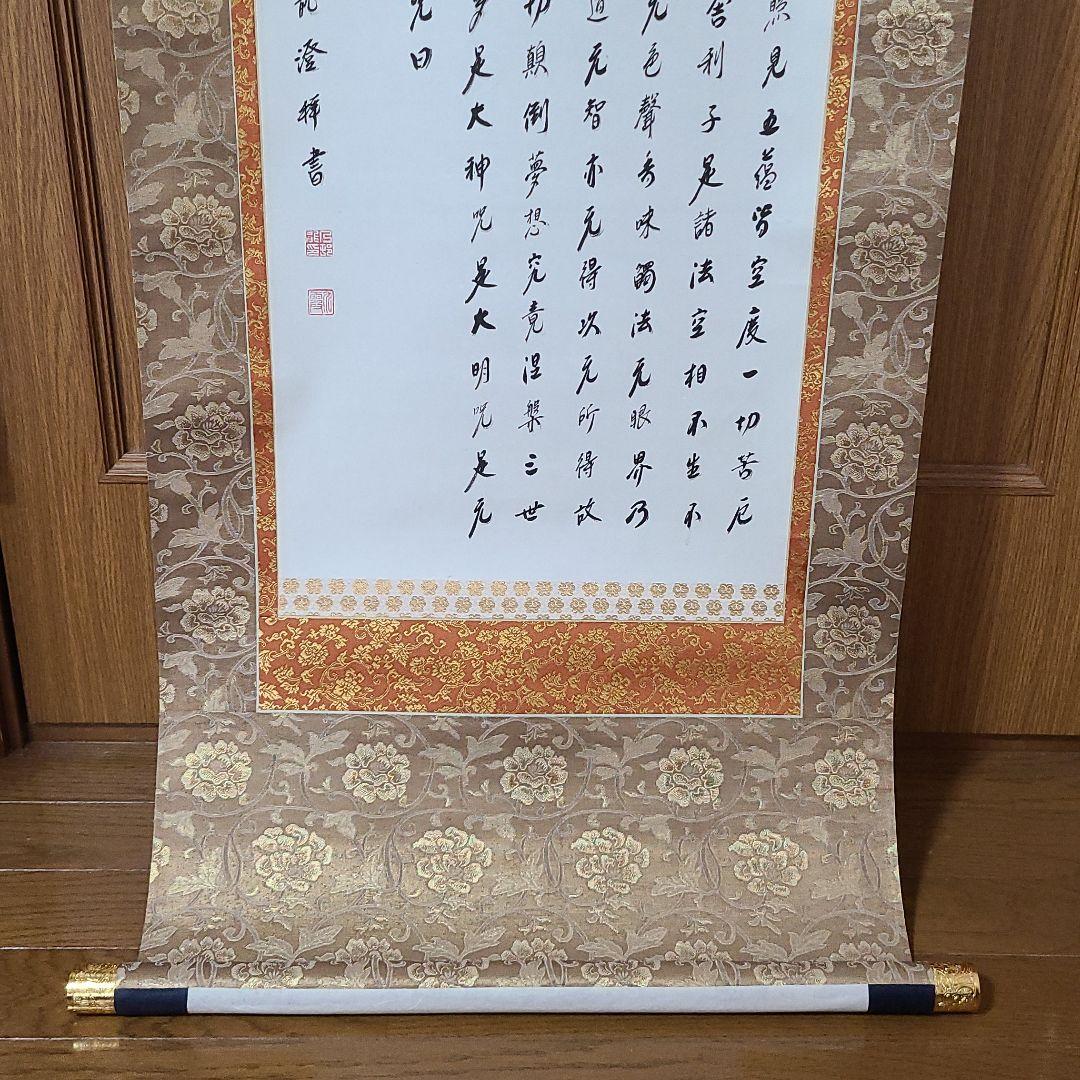 照見五蘊皆空度一切苦厄
舎利子是諸法空相不生不
无色聲香味觸法无眼界乃
道无智亦无得以无所得故
切顛倒夢想究竟涅槃三世
多是大神咒是大明咒是无
咒曰
澄拝書